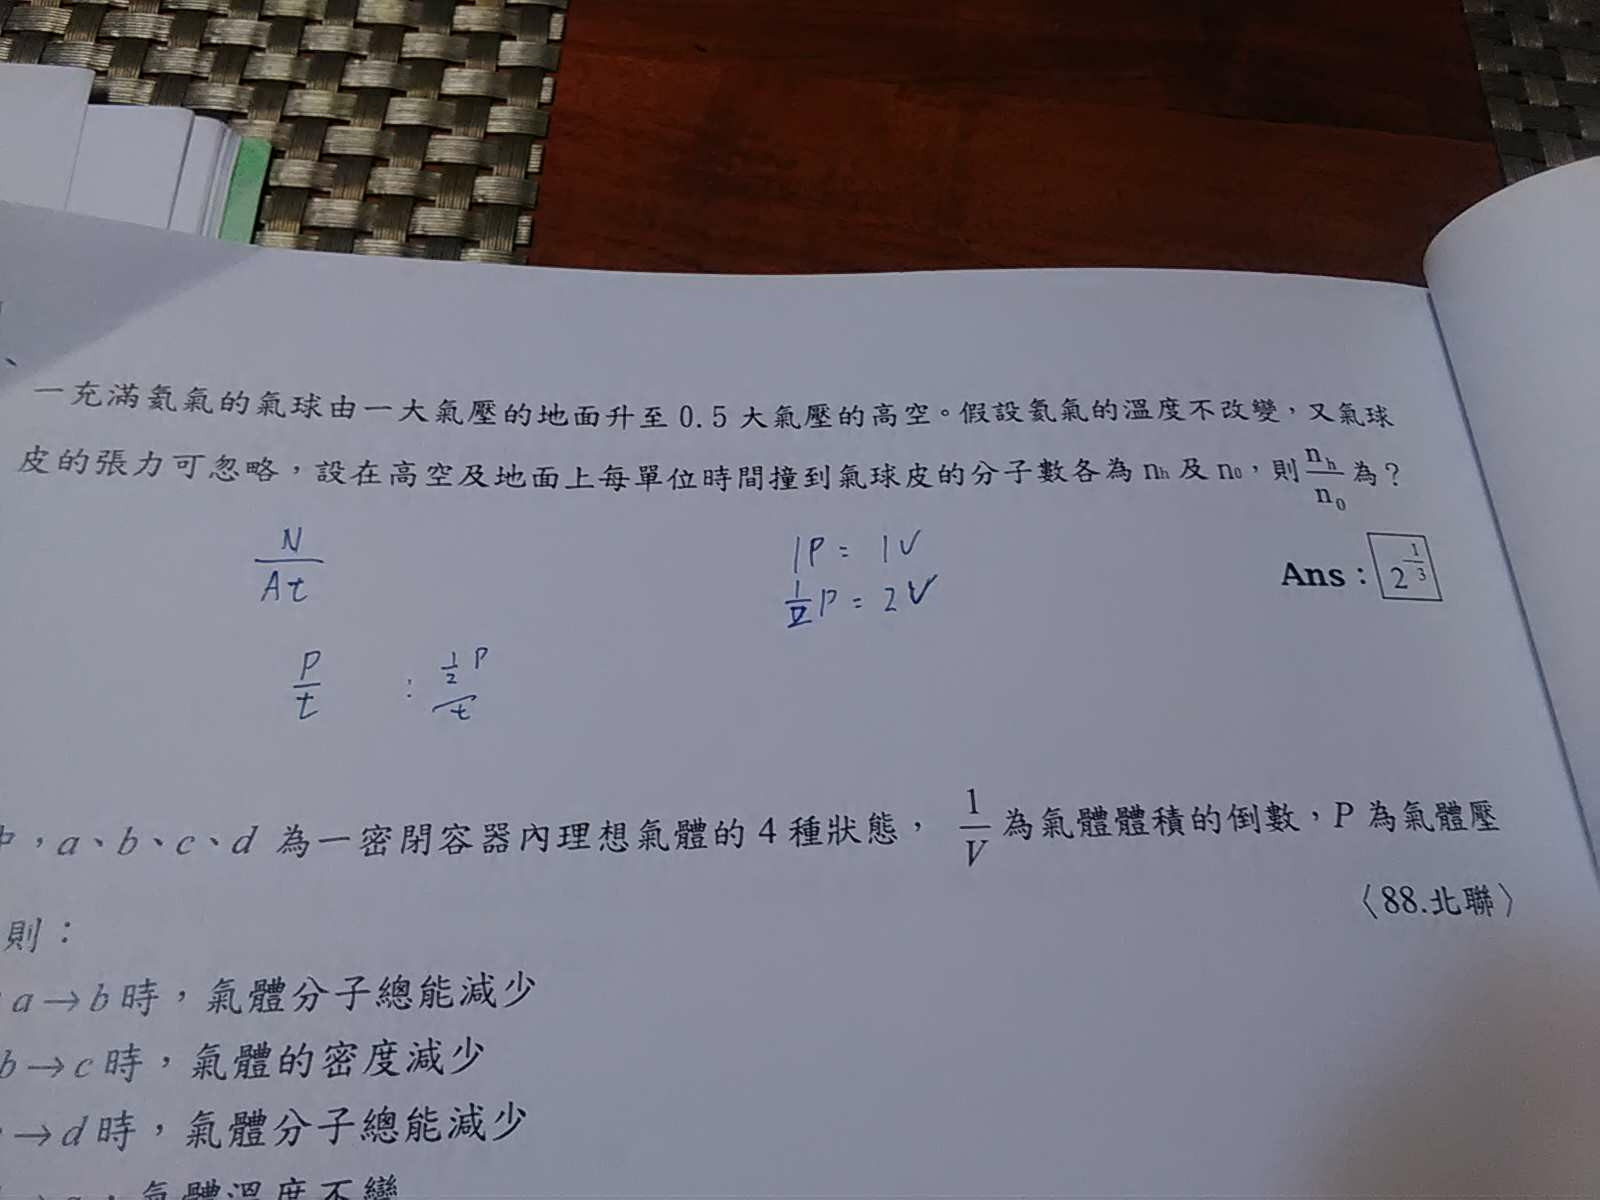 一充滿氦氣的氣球由一大氣壓的地面升至 0.5 大氣壓的高空。假設氦氣的溫度不改變，又氣球
皮的張力可忽略，設在高空及地面上每單位時間撞到氣球皮的分子數各為 nh 及 n0，則 nh/n0 為？
N/At
1P = 1V
1/2 P = 2V
Ans：2^(-1/3)
P/t : 1/2 P/t
中，a、b、c、d 為一密閉容器內理想氣體的 4 種狀態， 1/V 為氣體體積的倒數，P 為氣體壓
〈88.北聯〉
則：
a→b 時，氣體分子總能減少
b→c 時，氣體的密度減少
→d 時，氣體分子總能減少
，氣體溫度不變